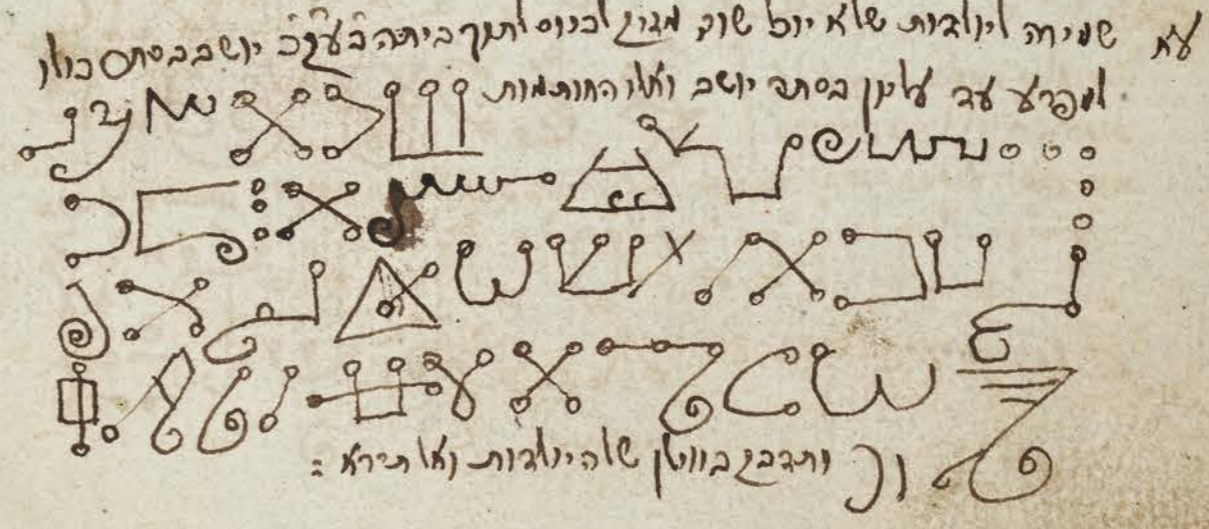 עא שמירה ליולדות שלא יוכל שום מזיק לכנוס לתוך ביתה יושב בסתר כולו
למפרע עד עליון בסתר יושב ואלו החותמות
של היולדות ואל תירא :